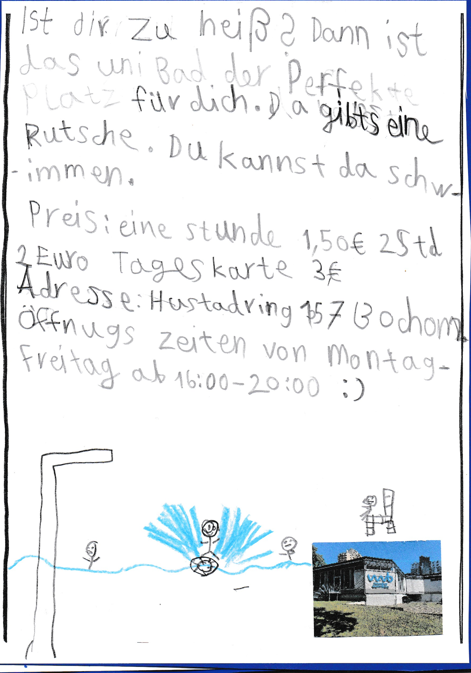 Ist dir zu heiß? Dann ist
das uni Bad der Perfekte
Platz für dich. Da gibts eine
Rutsche. Du kannst da schw-
-immen.
Preis: eine stunde 1,50€ 2Std
2 Euro Tageskarte 3€
Adresse: Hustadring 157 Bochom.
Öffnugs zeiten von montag-
freitag ab 16:00-20:00 :)